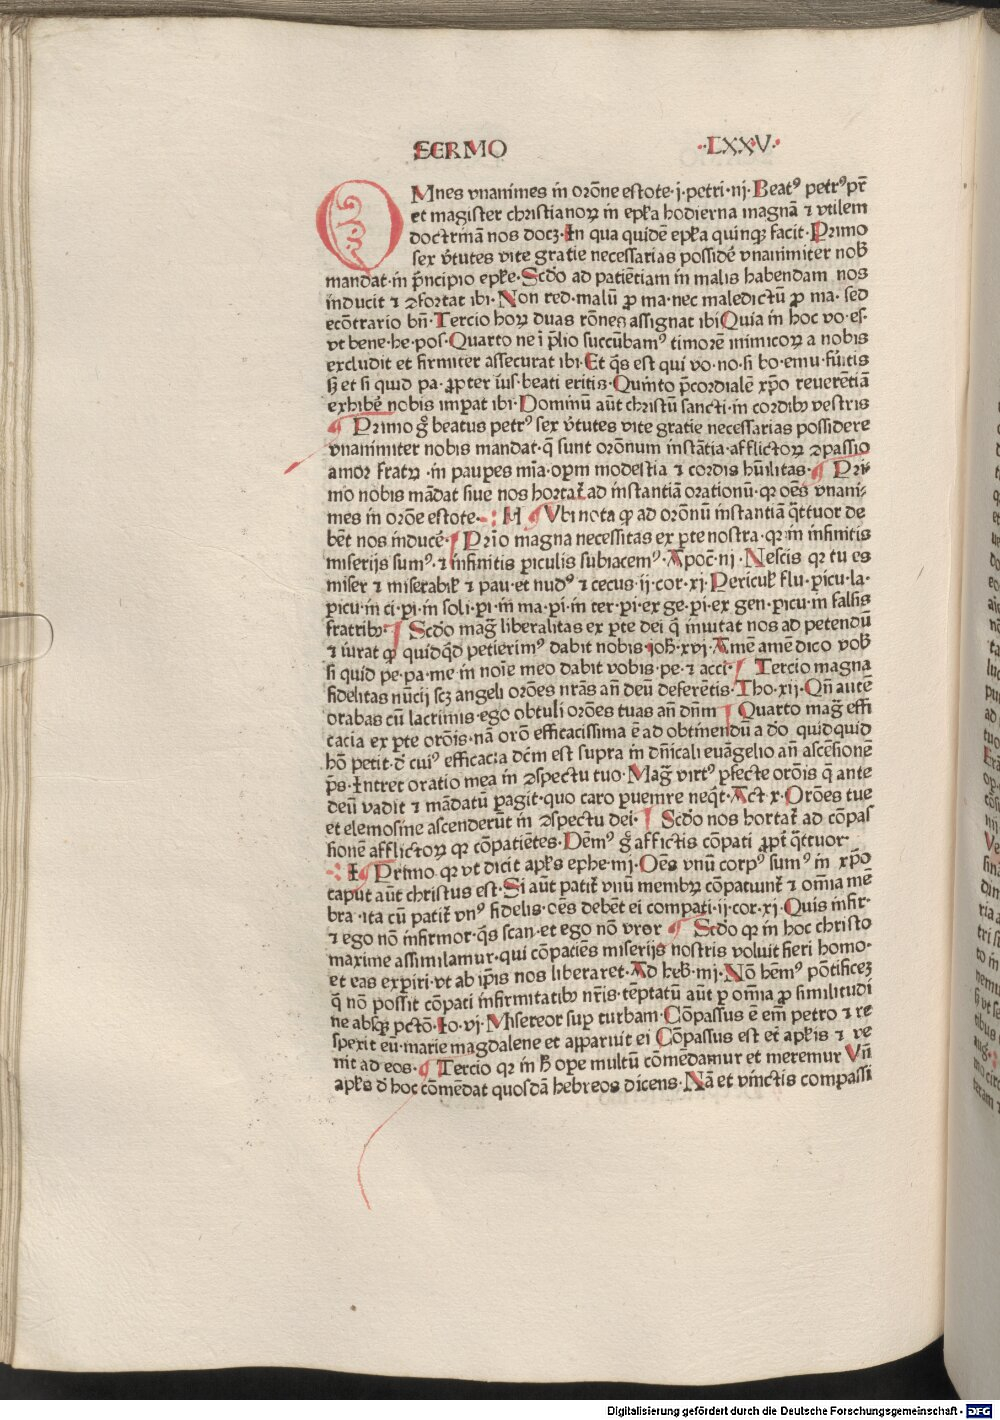 SERMO ·LXXV·
OMnes vnanimes in orōne estote·j·petri·iij·Beatꝰ petrꝰ pr̄
et magister christianoꝝ in epl̄a hodierna magnā ⁊ vtilem
doctrinā nos docꝫ·In qua quidē epl̄a quinqꝫ facit·Primo
sex v̄tutes vite gratie necessarias possidē vnanimiter nob̄
mandat·in p̄ncipio epl̄e·Scd̄o ad patiētiam in malis habendam nos
inducit ⁊ ꝯfortat ibi·Non red·malū ꝓ ma·nec maledictū ꝓ ma·sed
ecōtrario bn̄·Tercio hoꝝ duas rōnes assignat ibi Quia in hoc vo·es·
vt bene·he·pos·Quarto ne ī p̄lio succūbamꝰ timorē inimicoꝝ a nobis
excludit et firmiter assecurat ibi·Et q̄s est qui vo·no·si bo·emu·fūitis
sꝫ et si quid pa·ꝓpter iūs·beati eritis·Quinto p̄cordialē xp̄o reuerētiā
exhibē nobis imꝑat ibi·Dominū aūt christū sancti·in cordibꝫ vestris
¶ Primo gͦ beatus petrꝰ sex v̄tutes vite gratie necessarias possidere
vnanimiter nobis mandat·q̄ sunt orōnum instātia·afflictoꝝ ꝯpassio
amor fratꝝ ·in pauꝑes mīa·oꝑm modestia ⁊ cordis hūilitas· ¶ Pri⸗
mo nobis mādat siue nos hortat̄ ad instantiā orationū·qꝛ oēs vnani⸗
mes in orōe estote· M ¶ Vbi nota ꝙ ad orōnū instantiā q̄ttuor de
bēt nos inducē· ¶ Prīo magna necessitas ex ꝑte nostra·qꝛ in infinitis
miserijs sumꝰ·⁊ infinitis ꝑiculis subiacemꝰ·Apoc̄·iij·Nescis qꝛ tu es
miser ⁊ miserabil̄ ⁊ pau·et nudꝰ ⁊ cecus·ij·cor·xj·Pericul̄ flu·ꝑicu·la·
ꝑicu·in ci·ꝑi·in soli·ꝑi·in ma·ꝑi·in ter·ꝑi·ex ge·ꝑi·ex gen·ꝑicu·in falsis
fratribꝫ· ¶ Scd̄o maḡ liberalitas ex ꝑte dei q̄ inuitat nos ad petendū
⁊ iurat ꝙ quidq̄d petierimꝰ dabit nobis·ioh̄·xvj·Amē amē dico vob̄
si quid pe·pa·me in noīe meo dabit vobis·pe·⁊ acci· ¶ Tercio magna
fidelitas nūcij scꝫ angeli orōes nr̄as an̄ deū deferētis·Tho·xij·Qn̄ autē
orabas cū lacrimis·ego obtuli orōes tuas an̄ dn̄m ¶ Quarto maḡ effi
cacia ex ꝑte orōis·nā orō efficacissima ē ad obtinendū a dō quidquid
hō petit·d̄ cuiꝰ efficacia dc̄m est supra in dn̄icali euāgelio an̄ ascēsionē
p̄s·Intret oratio mea in ꝯspectu tuo·Maḡ virtꝰ ꝑfecte orōis q̄ ante
deū vadit ⁊ mādatū ꝑagit·quo caro ꝑuenire neq̄t·Act̄ x·Orōes tue
et elemosine ascenderūt in ꝯspectu dei· ¶ Scd̄o nos hortat̄ ad cōpas
sionē afflictoꝝ qꝛ cōpatiētes·Dēmꝰ gͦ afflictis cōpati ꝓpt̄ q̄ttuor·
I· ¶ Primo qꝛ vt dicit apl̄s ephe·iiij·Oēs vnū corpꝰ sumꝰ in xp̄o
caput aūt christus est·Si aūt patit̄ vnū membꝝ cōpatiunt̄ ⁊ om̄ia mē
bra·ita cū patit̄ vnꝰ fidelis·oēs debēt ei compati·ij·cor·xj·Quis infir·
⁊ ego nō infirmor·q̄s scan·et ego nō vror ¶ Scd̄o qꝛ in hoc christo
maxime assimilamur·qui cōpaciēs miserijs nostris voluit fieri homo·
et eas exꝑiri·vt ab ip̄is nos liberaret·Ad heb̄·iiij·Nō hēmꝰ pōtificeꝫ
q̄ nō possit cōpati infirmitatibꝫ nr̄is·tēptatū aūt ꝑ omīa ꝓ similitudi
ne absqꝫ pctō·Io·vj·Misereor suꝑ turbam·Cōpassus ē em̄ petro ⁊ re
spexit eū·marie magdalene et apparuit ei Cōpassus est et̄ apl̄is ⁊ ve
nit ad eos· ¶ Tercio qꝛ in h̄ ope multū cōmēdamur et meremur Vn̄
apl̄s d̄ hoc cōmēdat quosdā hebreos dicens·Nā et vinctis compassi
Digitalisierung gefördert durch die Deutsche Forschungsgemeinschaft - DFG